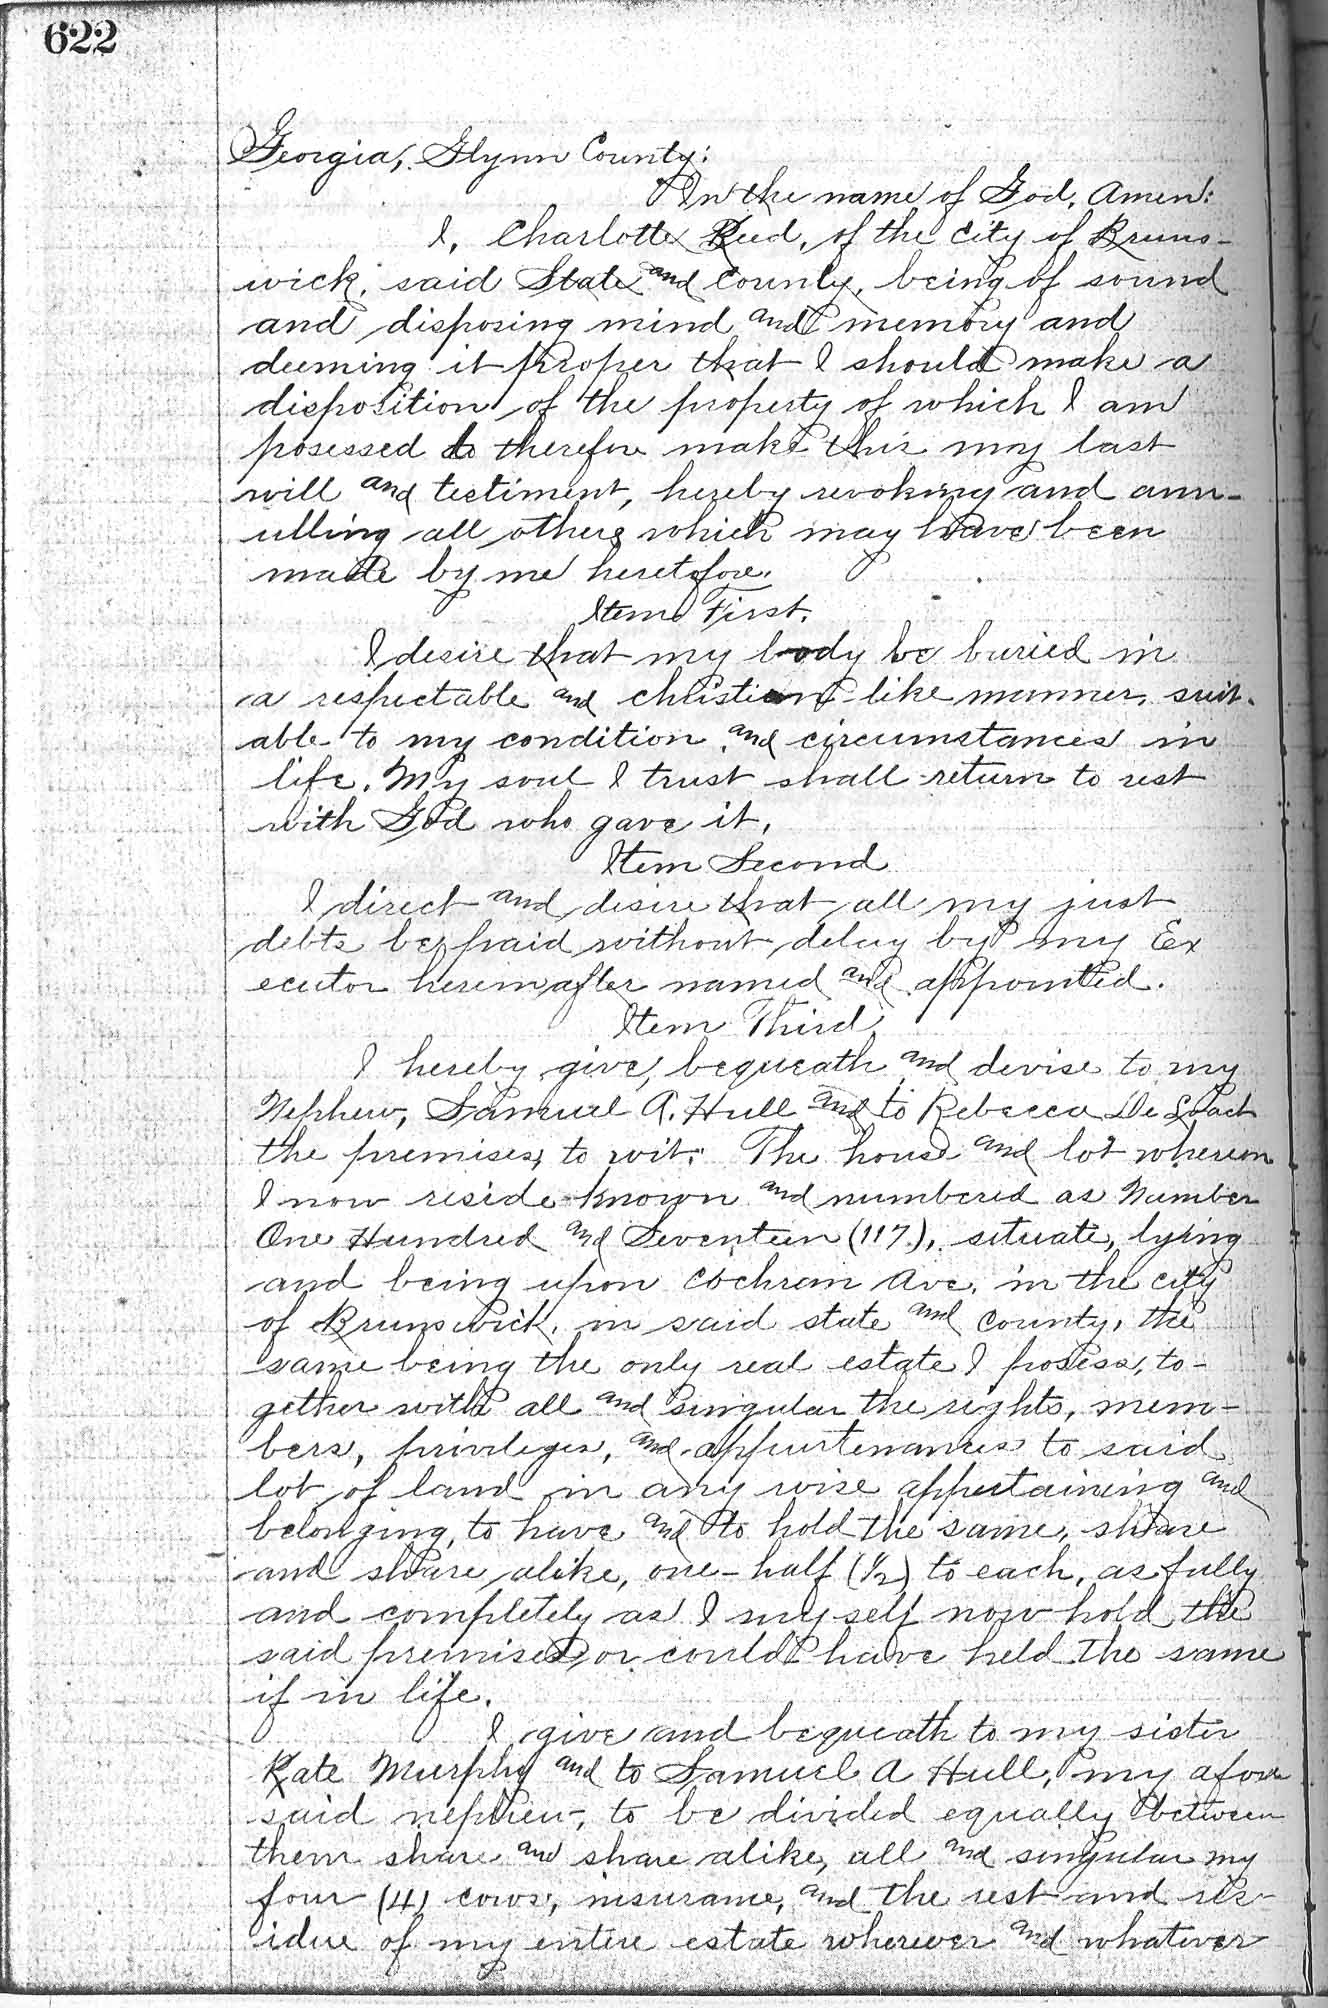 622
Georgia, Glynn County:
In the name of God, Amen:
I, Charlotte Reed, of the city of Bruns-
wick, said State and County, being of sound
and disposing mind and memory and
deeming it proper that I should make a
disposition of the property of which I am
posessed do therefore make this my last
will and testiment, hereby revoking and ann-
ulling all others which may have been
made by me heretofore.
Item First.
I desire that my body be buried in
a respectable and christian like manner, suit-
able to my condition and circumstances in
life. My soul I trust shall return to rest
with God who gave it.
Item Second
I direct and desire that all my just
debts be paid without delay by my Ex
ecutor hereinafter named and appointed.
Item Third.
I hereby give, bequeath and devise to my
Nephew, Samuel A. Hull and to Rebecca De Loach
the premises, to wit: The house and lot whereon
I now reside known and numbered as Number
One Hundred and Seventeen (117), situate, lying
and being upon Cochran Ave. in the city
of Brunswick, in said state and county, the
same being the only real estate I posess, to-
gether with all and singular the rights, mem-
bers, privileges, and appurtenances to said
lot of land in any wise appertaining and
belonging, to have and to hold the same, share
and share alike, one-half (1/2) to each, as fully
and completely as I myself now hold the
said premises or could have held the same
if in life.
I give and bequeath to my sister
Kate Murphy and to Samuel A Hull, my afore
said nephew, to be divided equally between
them share and share alike, all and singular my
four (4) cows, insurance, and the rest and res-
idue of my entire estate wherever and whatever